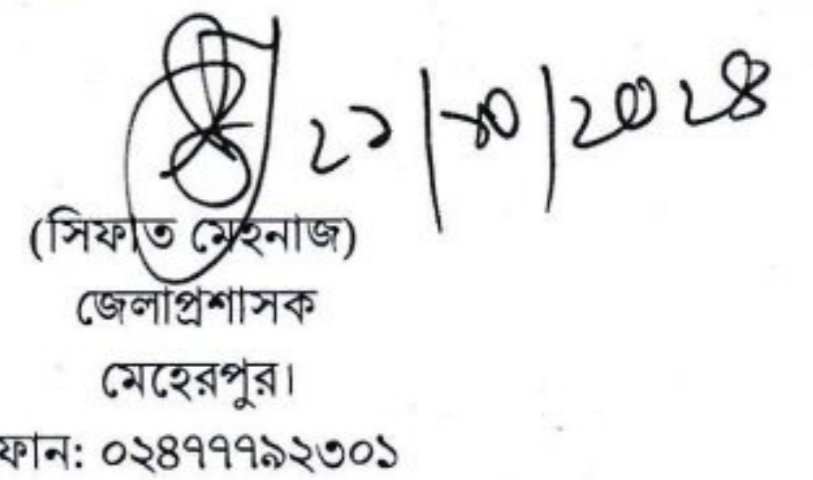 ২১/১০/২০২৪
(সিফাত মেহনাজ)
জেলাপ্রশাসক
মেহেরপুর।
ফোন: ০২৪৭৭৭৯২৩০১